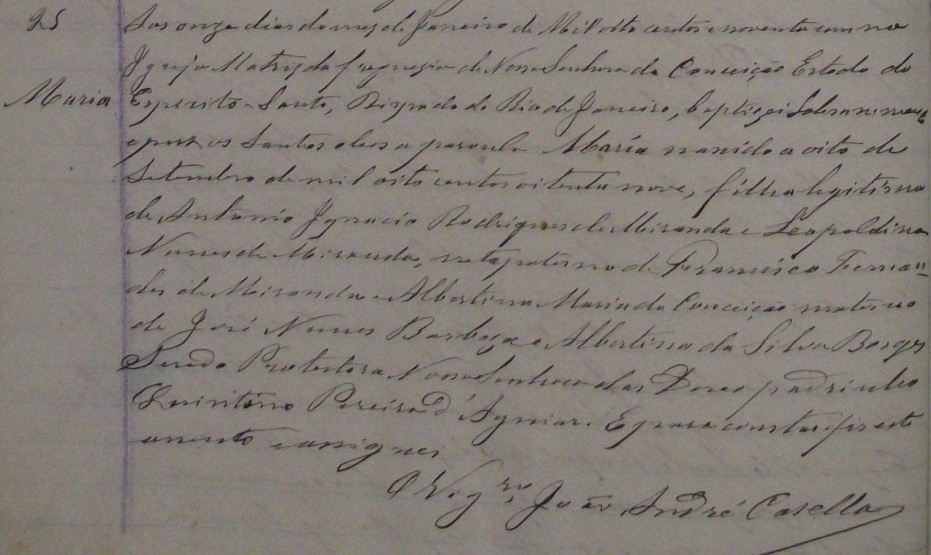 25
Maria
Aos onze dias do mez de Janeiro de Mil oito centos e noventa e um na
Igreja Matriz da freguezia de Nossa Senhora da Conceição Estado do
Espirito-Santo, Bispado do Rio de Janeiro, baptizei Solemnemente
e puz os Santos oleos a parvula Maria nascida a oito de
Setembro de mil oito centos oitenta nove, filha legitima
de Antonio Ignacio Rodrigues de Miranda e Leopoldina
Nunes de Miranda, neta paterna de Francisco Fernan=
des de Miranda e Albertina Maria da Conceição materna
de José Nunes Barboza e Albertina da Silva Borges
Sendo Protectora Nossa Senhora das Dores padrinho
Quintino Pereira d'Aguiar. E para constar fiz este
assento e assignei
O Vigro João André Casella